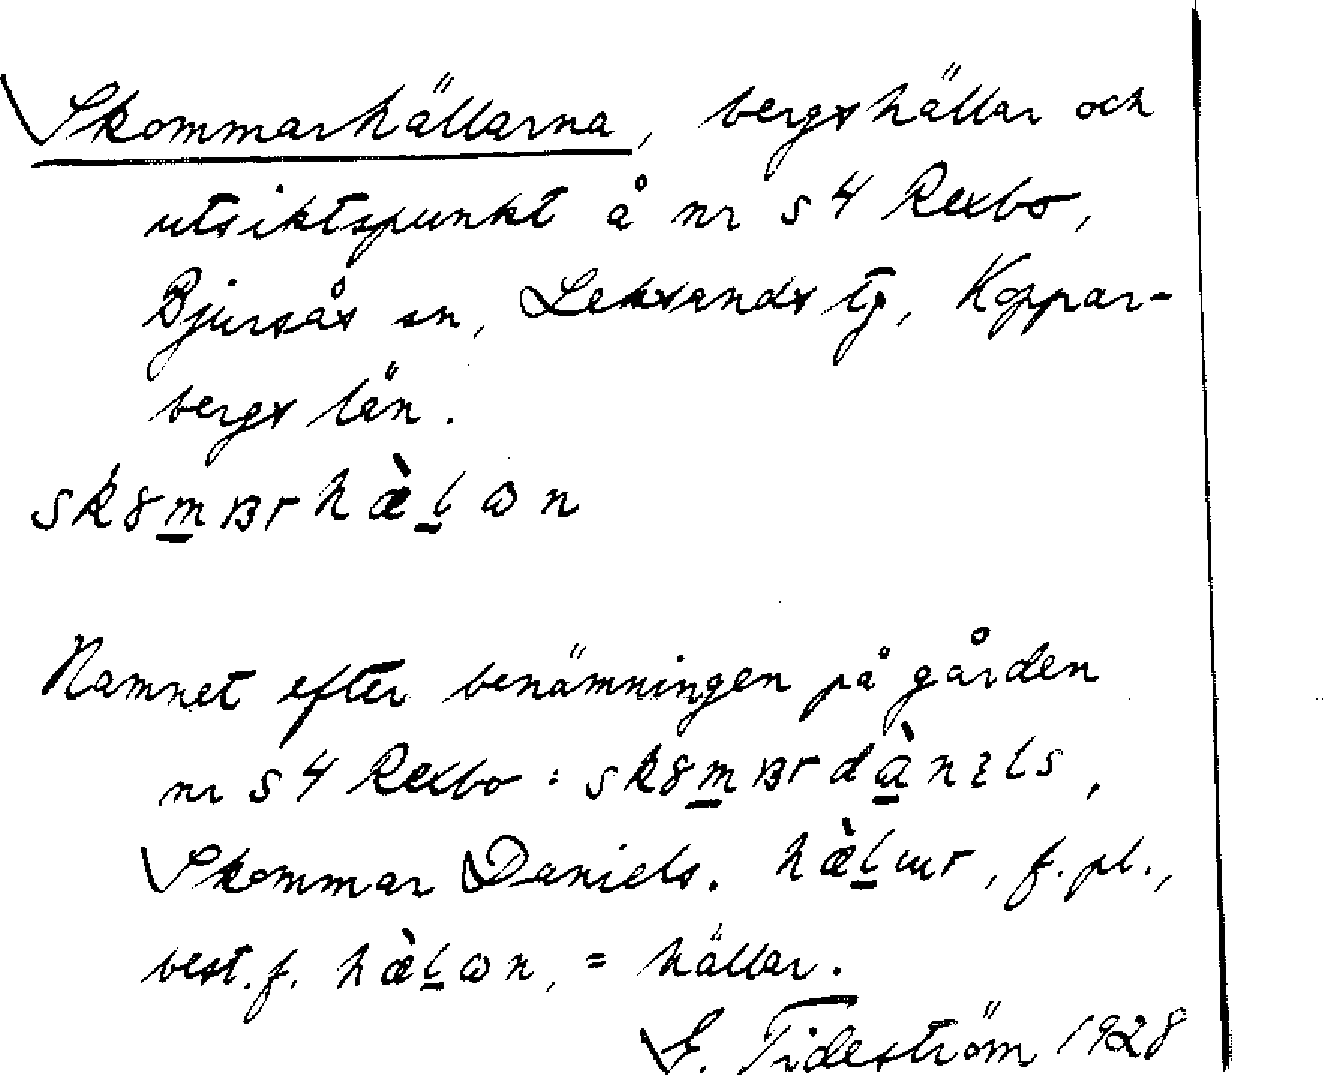 Skommarhällarna, bergshällar och
utsiktspunkt å nr s 4 Rexbo,
Bjursås sn, Leksands tg, Koppar-
bergs län.
sk8mʙrhæ̀lɷn
Namnet efter benämningen på gården
nr s 4 Rexbo: sk8mʙrdànɪls,
Skommar Daniels. hæ̀lɯr, f. pl.,
best. f. hæ̀lɷn, = hällar.
G. Tideström 1928